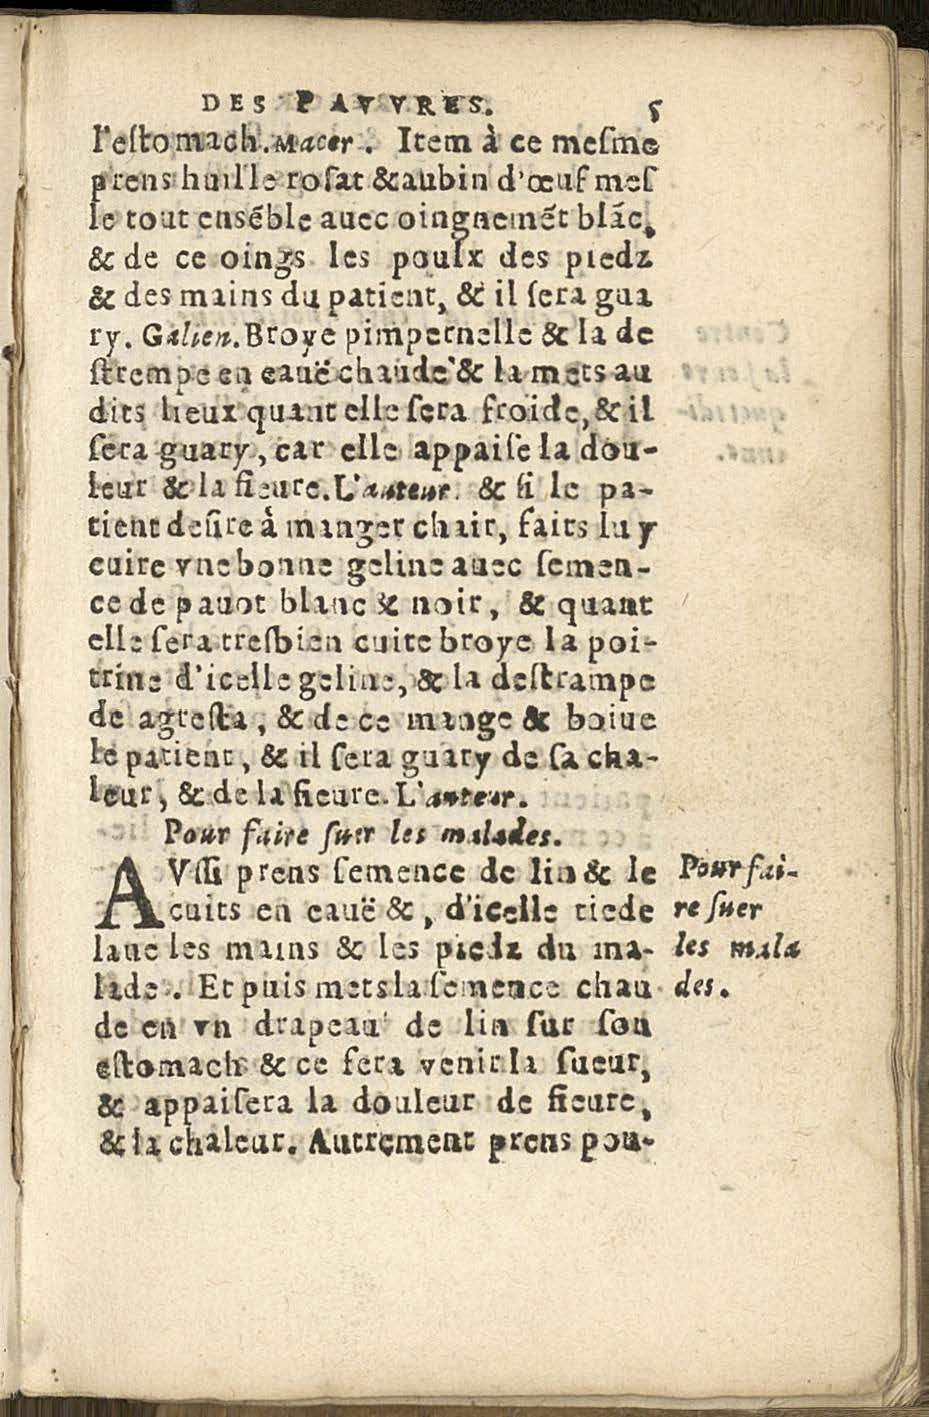 DES PAVVRES. 5
l'eſtomach. Macer. Item à ce meſme
prens huille roſat & aubin d'œuf meſ
le tout enſẽble auec oingnemẽt blãc,
& de ce oings les poulx des piedz
& des mains du patient, & il ſera gua
ry. Galien. Broye pimpernelle & la de
ſtrempe en eauë chaude & la mets au
dits lieux quant elle ſera froide, & il
ſera guary, car elle appaiſe la dou-
leur & la fieure. L'auteur. & ſi le pa-
tient deſire à manger chair, faits luy
cuire vne bonne geline auec ſemen-
ce de pauot blanc & noir, & quant
elle ſera treſbien cuite broye la poi-
trine d'icelle geline, & la deſtrampe
de agreſta, & de ce mange & boiue
le patient, & il ſera guary de ſa cha-
leur, & de la fieure. L'auteur.
Pour faire ſuer les malades.
AVſſi prens ſemence de lin & le
cuits en eauë &, d'icelle tiede
laue les mains & les piedz du ma-
lade. Et puis mets la ſemence chau
de en vn drapeau de lin ſur ſon
eſtomach & ce fera venir la ſueur,
& appaiſera la douleur de fieure,
& la chaleur. Autrement prens pou-
Pour fai-
re ſuer
les mala
des.